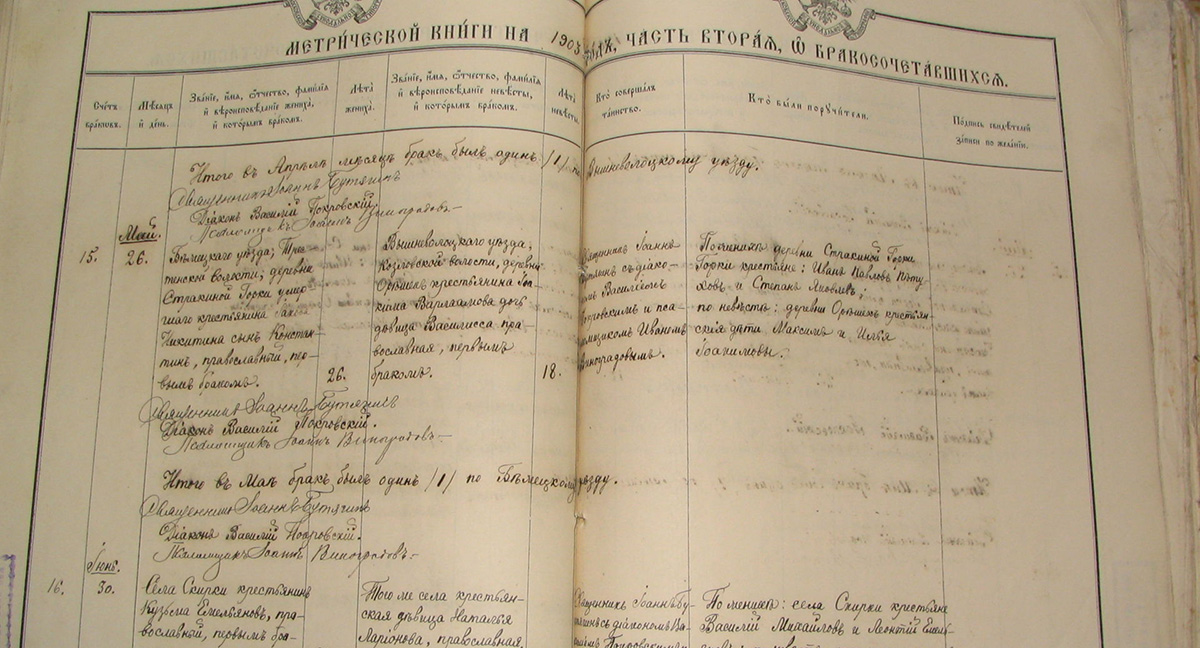 МЕТРИ́ЧЕСКОЙ КНИ́ГИ НА 1903 ГОДХ, ЧАСТЬ ВТОРА́Я, Ѿ БРАКОСОЧЕТА́ВШИХСЯ.
Счетъ браковъ.
Мѣсяцъ и день.
Званіе, имя, отчество, фамилія и вѣроисповѣданіе жениха, и которымъ бракомъ.
Лѣта жениха.
Званіе, имя, отчество, фамилія и вѣроисповѣданіе невѣсты, и которымъ бракомъ.
Лѣта невѣсты.
Кто совершалъ таинство.
Кто были поручители.
Подпись свидѣтелей записи по желанію.
Итого въ Апрѣлѣ мѣсяцѣ бракъ былъ одинъ /1/ по Вышневолоцкому уѣзду.
Священникъ Іоаннъ Бутягинъ
Діаконъ Василій Покровскій
Псаломщикъ Іоаннъ Виноградовъ
Май.
15.
26.
Бѣжецкаго уѣзда,
волости, деревни
Стражиной Горки умер-
шаго крестьянина
Никитина сынъ Констан-
тинъ, православный, пер-
вымъ бракомъ.
26.
Вышневолоцкаго уѣзда,
Козловской волости, деревни
крестьянина Іоа-
кима Варлаамова дочь
дѣвица Василисса пра-
вославная, первымъ
бракомъ.
18.
Священникъ Іоаннъ
Бутягинъ съ діако-
номъ Василіемъ
Покровскимъ и пса-
ломщикомъ Иваномъ
Виноградовымъ.
По женихѣ деревни Стражиной Горки
Горки крестьяне: Иванъ Павловъ Пѣту-
ховъ и Степанъ Яковлевъ;
по невѣстѣ: деревни крестьян-
скія дѣти Максимъ и Илья
Іоакимовы.
Священникъ Іоаннъ Бутягинъ
Діаконъ Василій Покровскій.
Псаломщикъ Іоаннъ Виноградовъ
Итого въ Маѣ бракъ былъ одинъ /1/ по Бѣжецкому уѣзду.
Священникъ Іоаннъ Бутягинъ
Діаконъ Василій Покровскій.
Псаломщикъ Іоаннъ Виноградовъ
Іюнь.
16.
30.
Села Скирки крестьянинъ
Кузьма Емельяновъ, пра-
вославный, первымъ бра-
Того же села крестьян-
ская дѣвица Наталья
Ларіонова, православная,
Священникъ Іоаннъ Бу-
тягинъ съ діакономъ Ва-
силіемъ Покровскимъ
По женихѣ: села Скирки крестьяне
Василій Михайловъ и Леонтій Емель-